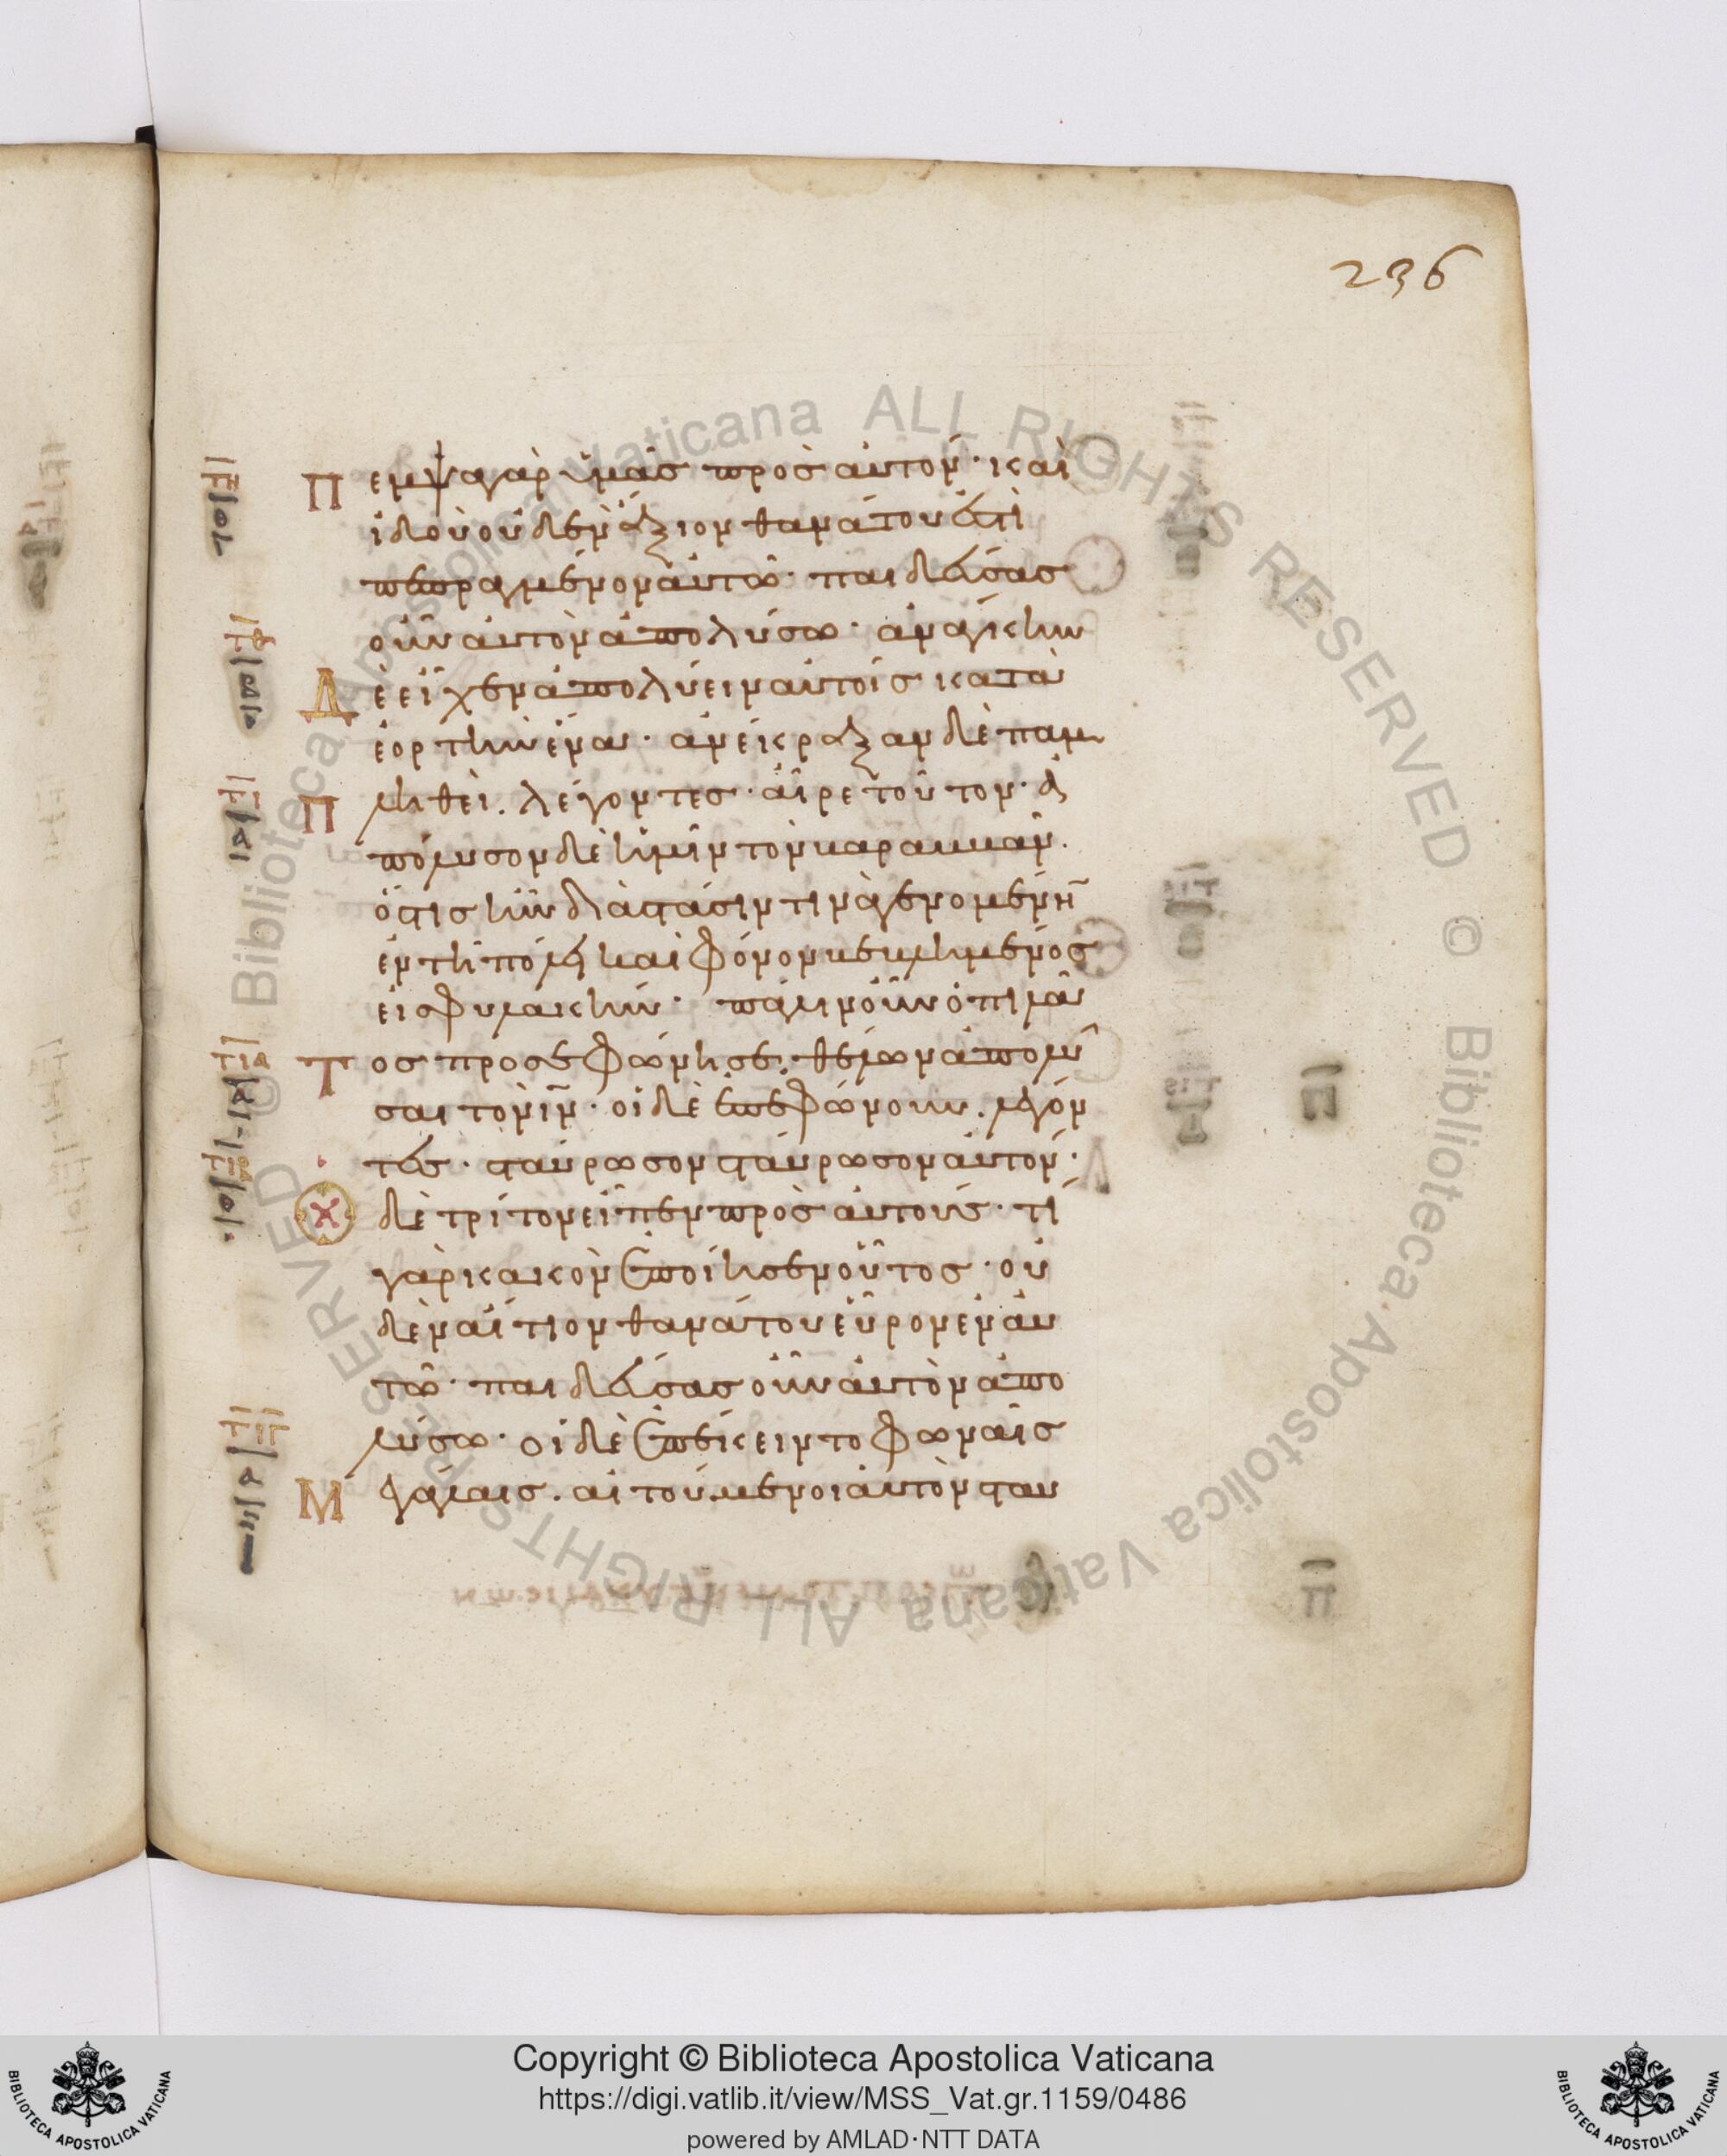 236
Π εμψα γὰρ ὑμᾶς πρὸς αὐτόν · καὶ
ἰδοὺ οὐδὲν ἄξιον θανάτου ἐστὶ
πεπραγμένον αὐτῶ · παιδεύσας
οὖν αὐτὸν ἀπολύσω · ἀνάγκην
Δ ὲ εἶχεν ἀπολύειν αὐτοῖς κατὰ
ἑορτὴν ἕνα · ἀνέκραξαν δὲ παμ
Π ληθεὶ . λέγοντες · αἶρε τοῦτον · ἀ
πόλυσον δὲ ἡμῖν τὸν βαραββᾶν .
ὅστις ἦν διὰ στάσιν τινὰ γενομένην
ἐν τῆ πόλει καὶ φόνον βεβλημένος
εἰς φυλακήν · πάλιν οὖν ὁ πιλᾶ
τος προσεφώνησε . θέλων ἀπολῦ
σαι τὸν ιν · οἱ δὲ ἐπεφώνουν . λέγον
τες · σταύρωσον σταύρωσον αὐτόν ·
δὲ τρίτον εἶπεν πρὸς αὐτούς · τί
γὰρ κακὸν ἐποίησεν οὗτος · οὐ
δὲν αἴτιον θανάτου εὗρον ἐν αὐ
τῶ · παιδεύσας οὖν αὐτὸν ἀπο
λύσω · οἱ δὲ ἐπέκειντο φωναῖς
Μ εγάλαις . αἰτούμενοι αὐτὸν σταυ
Copyright © Biblioteca Apostolica Vaticana
https://digi.vatlib.it/view/MSS_Vat.gr.1159/0486
powered by AMLAD·NTT DATA
BIBLIOTECA APOSTOLICA VATICANA
BIBLIOTECA APOSTOLICA VATICANA